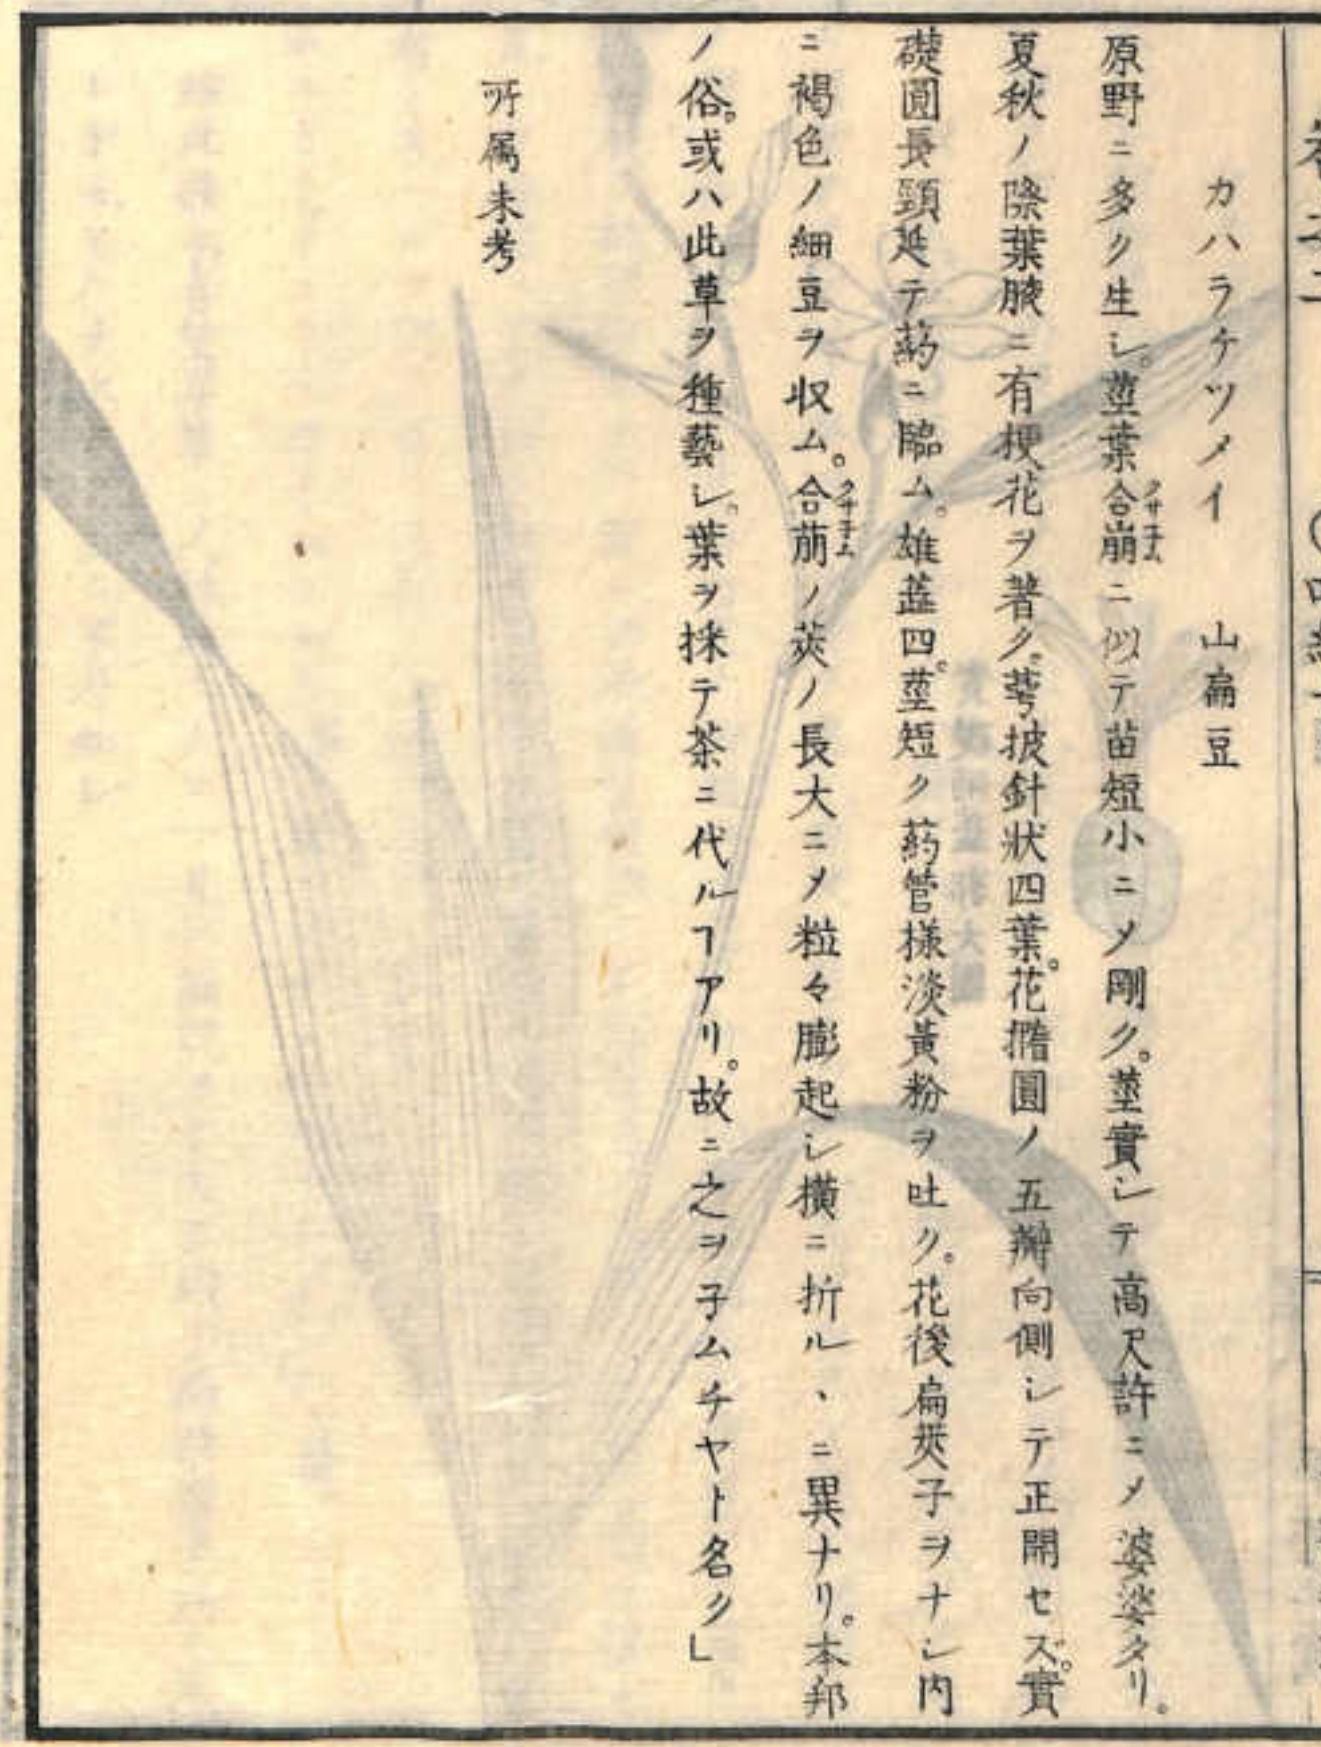 カハラケツメイ　山扁豆
原野ニ多ク生シ。莖葉合萠ニ似テ苗短小ニメ剛ク。莖實シテ高尺許ニメ婆娑タリ。
夏秋ノ際葉腋ニ有梗花ヲ著ク。萼披針狀四葉。花橢圓ノ五瓣向側シテ正開セズ。實
礎圓長頸延テ葯ニ臨ム。雄蕋四。莖短ク葯管樣淡黃粉ヲ吐ク。花後扁莢子ヲナシ内
ニ褐色ノ細豆ヲ収ム。合萠ノ莢ノ長大ニメ粒々膨起シ橫ニ折ル、ニ異ナリ。本邦
ノ俗。或ハ此草ヲ種藝シ。葉ヲ採テ茶ニ代ルヿアリ。故ニ之ヲ子ムチヤト名ク」
所属未考